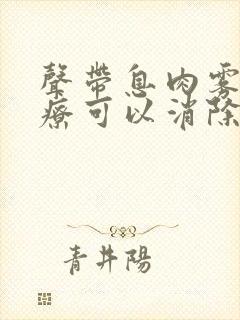 聲帶息肉霧
療可以消除
青井陽